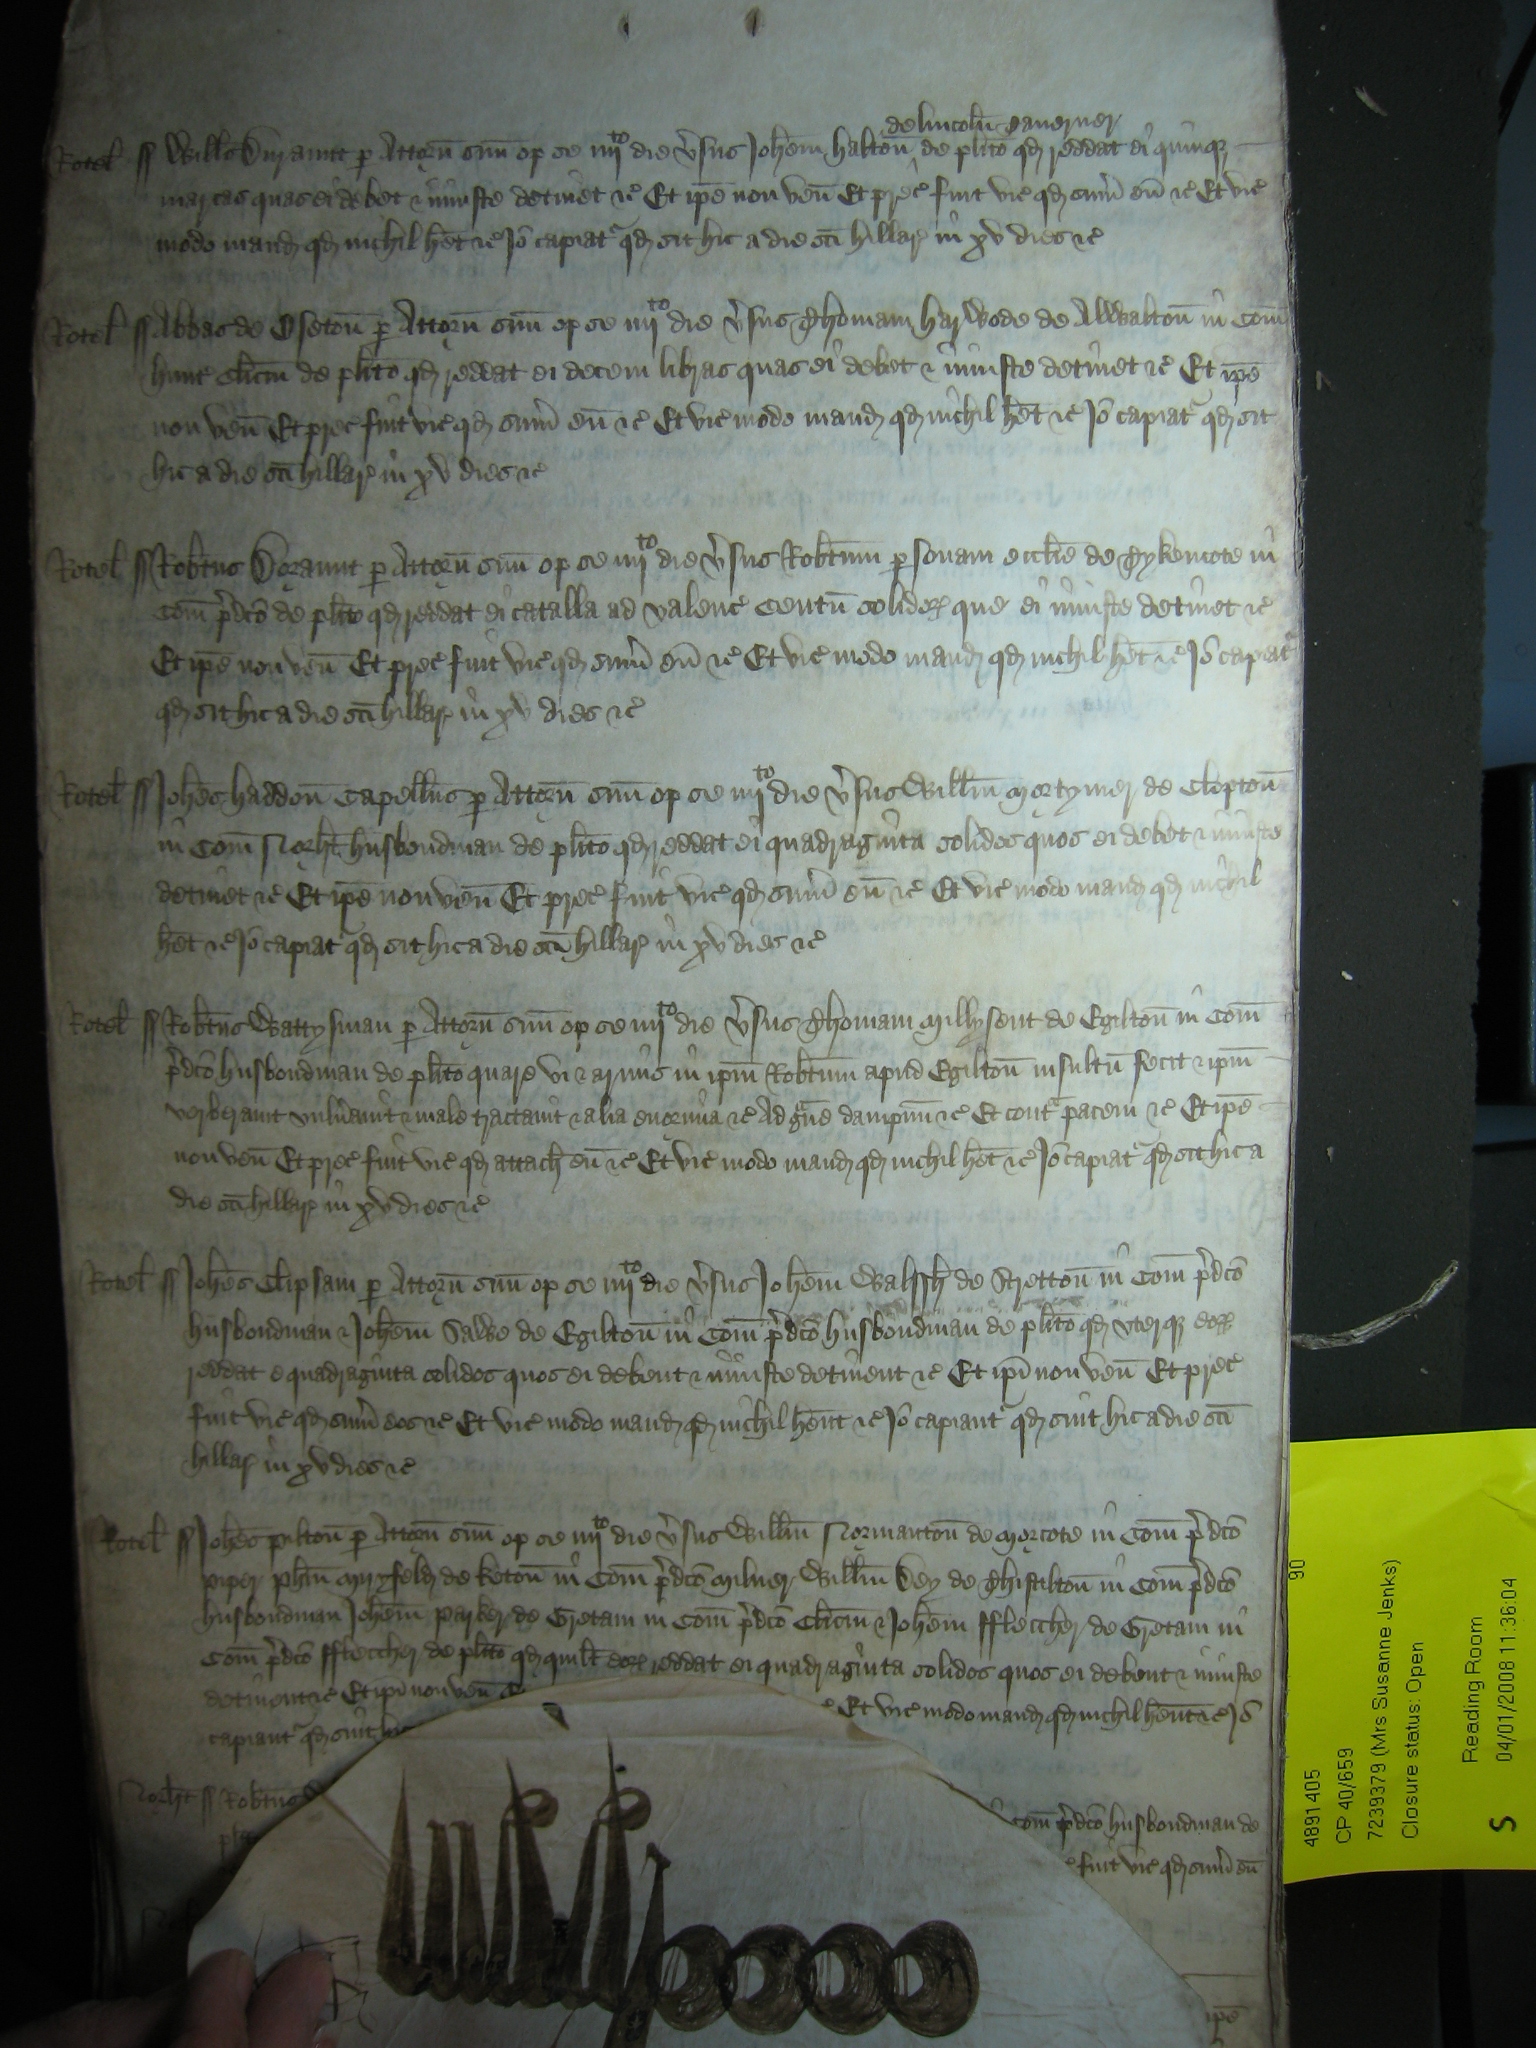 de lincoln̄ Tauerner
Rotel ſſ Willūs Duraunt p Attorn̄ suū op se iiijto die v̄sus Joh̄em halton̄ de pl̄ito qd reddat ei quinqꝫ
marcas quas ei debet & iniuste detinet &c̄ Et ip̄e non ven̄ Et prec̄ fuit vic̄ qd sum̄ eū &c̄ Et vic̄
modo mand qd nichil h̄et &c̄ Jō capiat qd sit hic a die sc̄i hillar in xv dies &c̄
Rotel ſſ Abbas de Oseton̄ p Attorn̄ suū op se iiijto die v̄sus Thomam harwode de Alwalton̄ in Com̄
hunt cl̄icm de pl̄ito qd reddat ei decem libras quas ei debet & iniuste detinet &c̄ Et ip̄e
non ven̄ Et prec̄ fuit vic̄ qd sum̄ eū &c̄ Et vic̄ modo mand qd nichil h̄et &c̄ Jō capiat qd sit
hic a die sc̄i hillar in xv dies &c̄
Rotel ſſ Rob̄tus Doraunt p Attorn̄ suū op se iiijto die v̄sus Rob̄tum p sonam eccl̄ie de Tykencote in
Com̄ p̄dc̄o de pl̄ito qd reddat ei catalla ad valenc̄ Centū solidor que ei iniuste detinet &c̄
Et ip̄e non ven̄ Et prec̄ fuit vic̄ qd sum̄ eū &c̄ Et vic̄ modo mand qd nichil h̄et &c̄ Jō capiat
qd sit hic a die sc̄i hillar in xv dies &c̄
Rotel ſſ Joh̄es haddon̄ Capell̄us p Attorn̄ suū op se iiijto die v̄sus Will̄m Mortymer de Clopton̄
in Com̄ Norht husbondman de pl̄ito qd reddat ei quadraginta solidos quos ei debet & iniuste
detinet &c̄ Et ip̄e non ven̄ Et prec̄ fuit vic̄ qd sum̄ eū &c̄ Et vic̄ modo mand qd nichil
h̄et &c̄ Jō capiat qd sit hic a die sc̄i hillar in xv dies &c̄
Rotel ſſ Rob̄tus Wattysman p Attorn̄ suū op se iiijto die v̄sus Thomam Millysent de Egilton̄ in Com̄
p̄dc̄o husbondman de pl̄ito quare vi & armis in ip̄m Rob̄tum apud Egilton̄ insultū fecit & ip̄m
verberauit vuln̄auit & male tractauit & alia enormia &c̄ Ad g̃ue dampnū &c̄ Et cont̃ pacem &c̄ Et ip̄e
non ven̄ Et prec̄ fuit vic̄ qd attach̄ eū &c̄ Et vic̄ modo mand qd nichil h̄et &c̄ Jō capiat qd sit hic a
die sc̄i hillar in xv dies &c̄
Rotel ſſ Joh̄es Clipsam p Attorn̄ suū op se iiijto die v̄sus Joh̄em Walssh̄ de Stretton̄ in Com̄ p̄dc̄o
husbondman & Joh̄em Salwe de Egilton̄ in Com̄ p̄dc̄o husbondman de pl̄ito qd vterqꝫ eor
reddat e quadraginta solidos quos ei debent & iniuste detinent &c̄ Et ip̄i non ven̄ Et prec̄
fuit vic̄ qd sum̄ eos &c̄ Et vic̄ modo mand qd nichil h̄ent &c̄ Jō capiant qd sint hic a die sc̄i
hillar in xv dies &c̄
Rotel ſſ Joh̄es Pilton̄ p Attorn̄ suū op se iiijto die v̄sus Will̄m Normanton̄ de Morcote in Com̄ p̄dc̄o
piper Ph̄m Miryfeld de Keton̄ in Com̄ p̄dc̄o Milner Will̄m Dey de Thistilton̄ in Com̄ p̄dc̄o
husbondman Joh̄em Parker de Gretam in Com̄ p̄dc̄o Cl̄icm & Joh̄em ffleccher de Gretam in
Com̄ p̄dc̄o ffleccher de pl̄ito qd quilt eor reddat ei quadraginta solidos quos ei debent & iniuste
detinent &c̄ Et ip̄i non ven̄ Et vic̄ modo mand qd nichil h̄ent &c̄ Jō
capiant qd sint hic
Norht ſſ Rob̄tus Com̄ p̄dc̄o husbondman de
fuit vic̄ qd sum̄ eū
ip̄e
4891405 90
CP 40/659
7239379 (Mrs Susanne Jenks)
Closure status: Open
Reading Room
S 04/01/2008 11:36:04